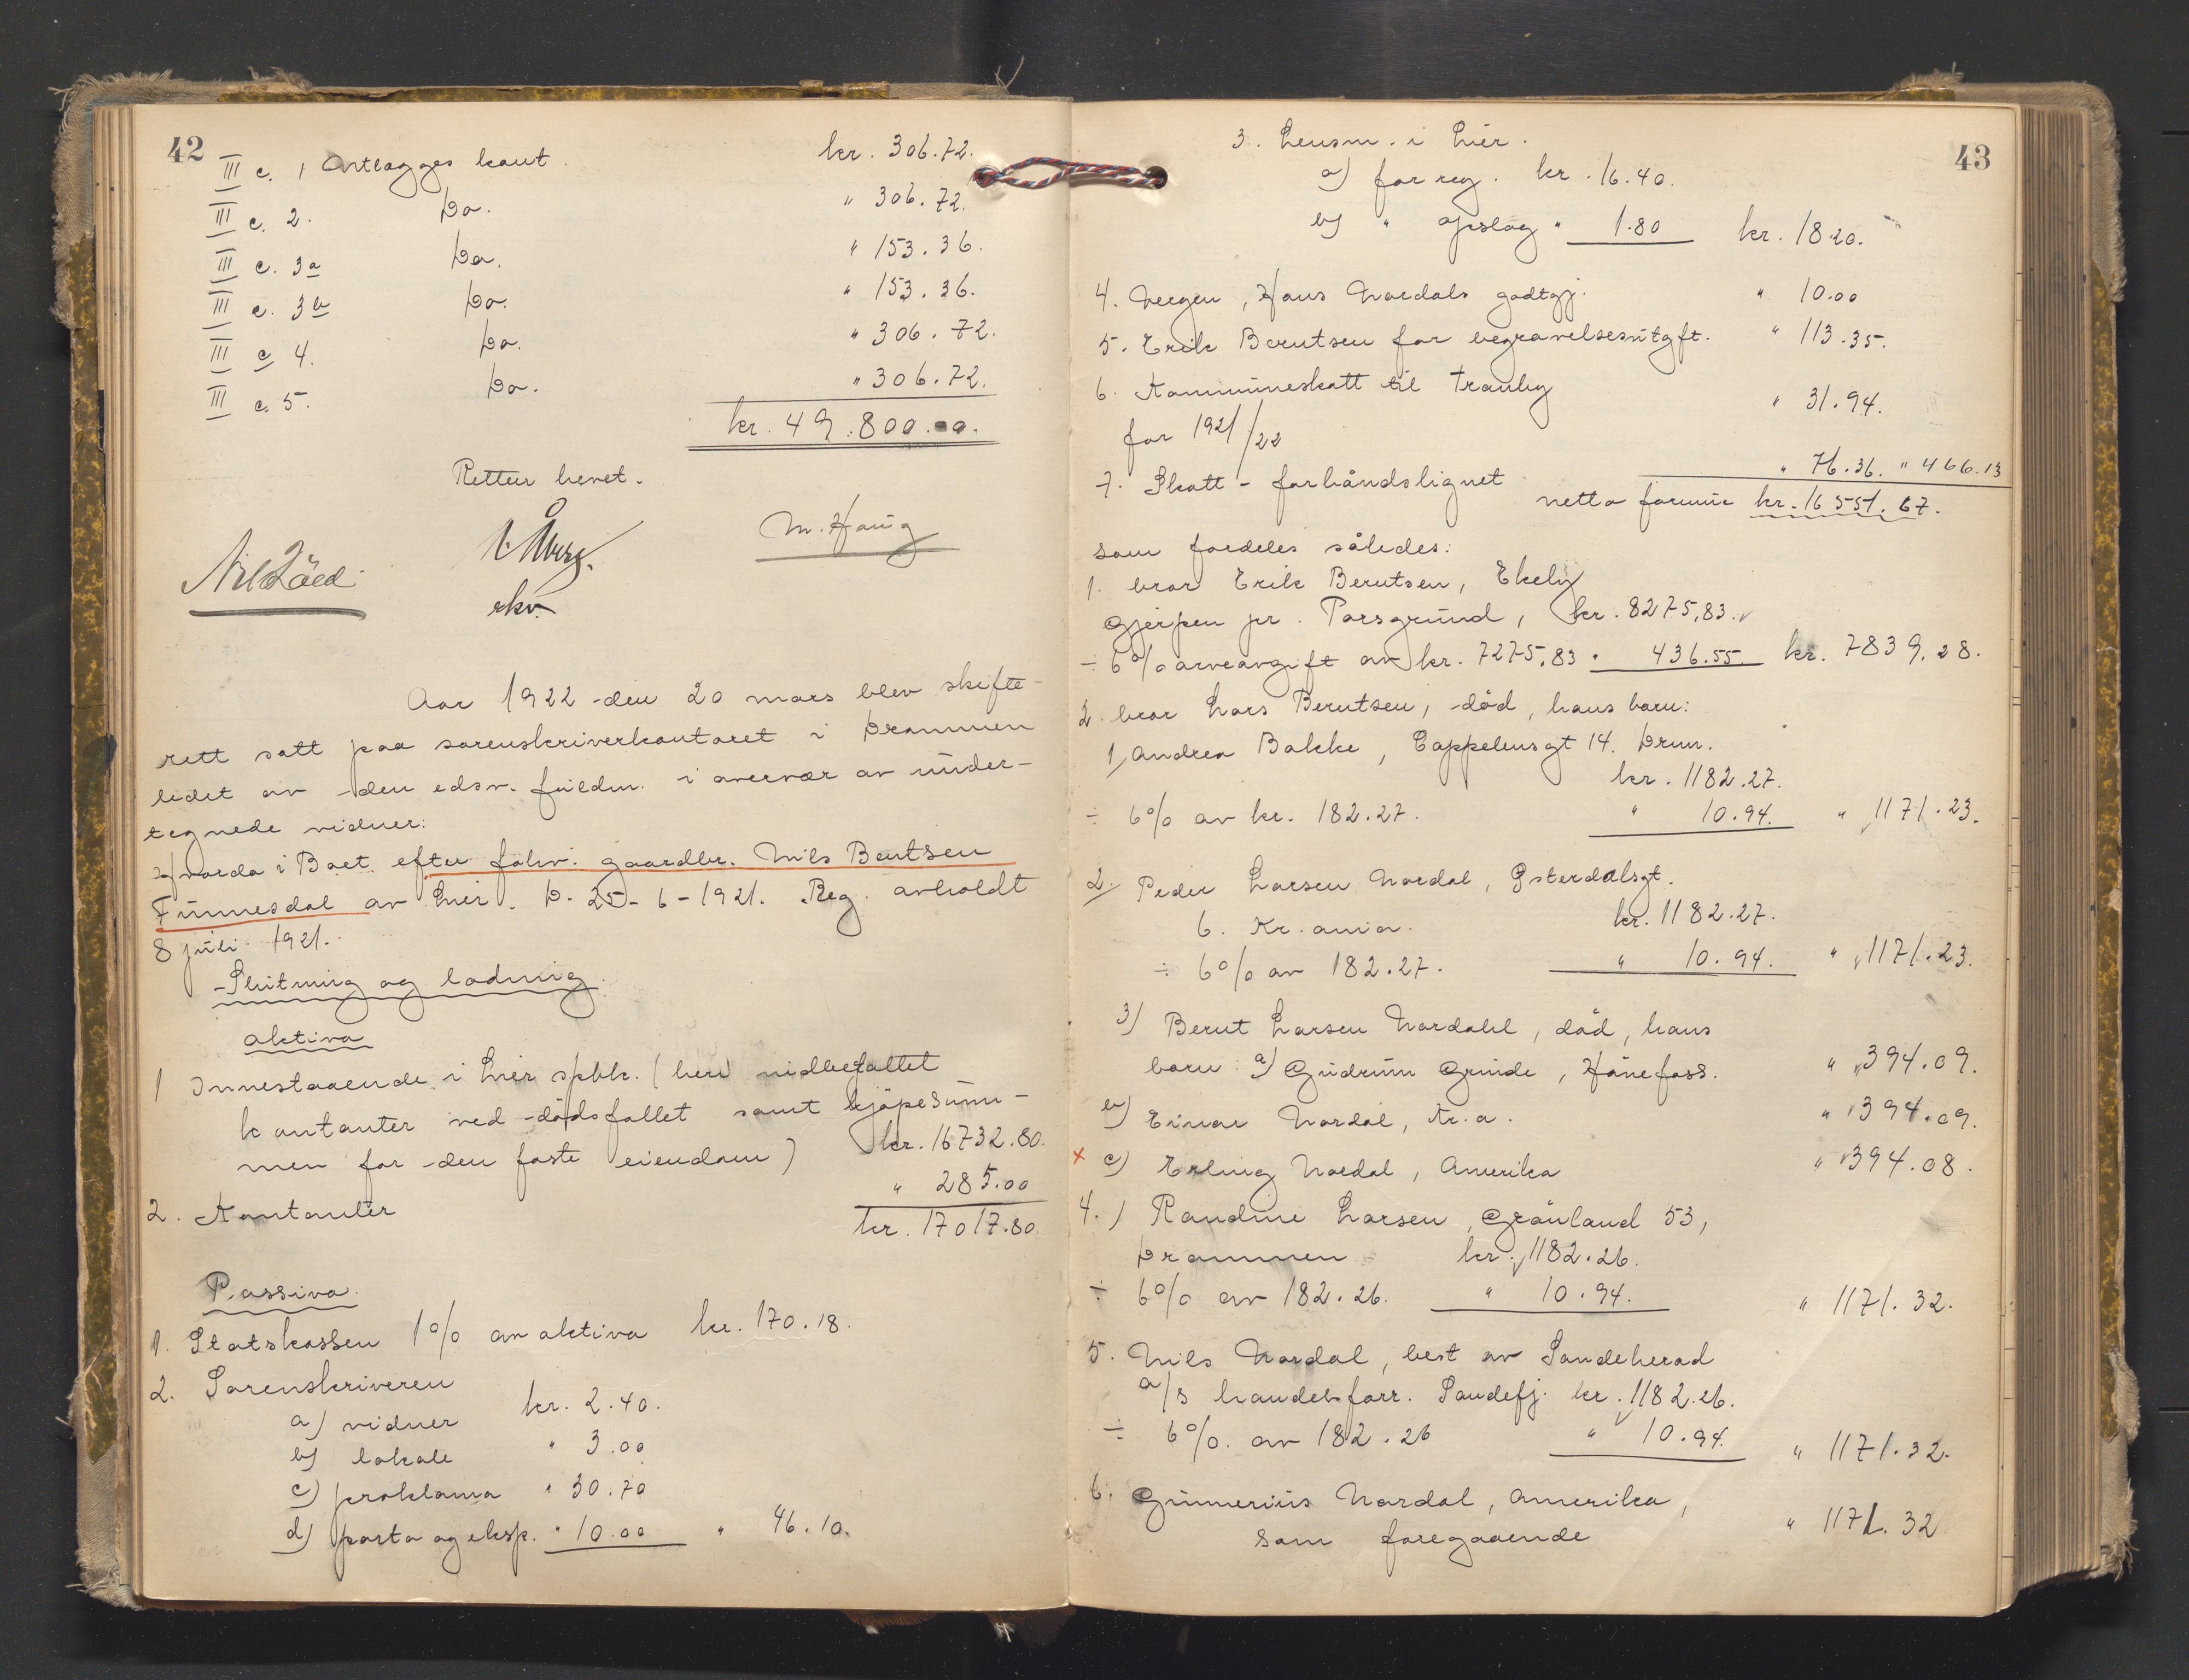 42
III c. 1 Utlægges kont. kr. 306.72.
III c. 2. Do. " 306.72.
III c. 3a Do. " 153.36.
III c. 3b Do. " 153.36.
III c 4. Do. " 306.72.
III c. 5. Do. " 306.72.
kr. 49.800.00.
Retten hevet.
M. Haug
fkv.
Aar 1922 den 20 mars blev skifte-
rett satt paa sorenskriverkontoret i Drammen
ledet av den edsv. fuldm. i overvær av under-
tegnede vidner:
Hvorda i Boet efter fohv. gaardbr. Nils Bentsen
Funnesdal av Lier. D. 25-6-1921. Reg. avholdt
8 juli 1921.
Slutning og lodning.
aktiva
1 Innestaaende i Lier spbk. (heri indbefattet
kontanter ved dødsfallet samt kjøpesum-
men for den faste eiendom) kr. 16732.80.
2. Kontanter " 285.00
kr. 17017.80.
Passiva.
1. Statskassen 1% av aktiva kr. 170.18.
2. Sorenskriveren
a) vidner kr. 2.40.
b) lokale " 3.00
c) proklama " 30.70
d) porto og eksp. " 10.00 " 46.10.
43
3. Lensm. i Lier.
a) for reg. kr. 16.40.
b) " opslag " 1.80 kr. 18.20.
4. Vergen, Hans Nordals godtgj. " 10.00
5. Erik Berntsen for begravelsesutgft. " 113.35.
6. Kommuneskatt til Tranby
for 1921/22 " 31.94.
7. Skatt - forhåndslignet " 76.36. " 466.13
netto formue kr. 16551.67.
som fordeles således:
1. bror Erik Berntsen, Ekely
Gjerpen pr. Porsgrund, kr. 8275,83.
÷ 6% arveavgift av kr. 7275,83 " 436.55 kr. 7839.28.
2. bror Lars Berntsen, død, hans barn:
1, Andrea Bakke, Cappelensgt 14. Drm.
kr. 1182.27.
÷ 6% av kr. 182.27. " 10.94. " 1171.23.
2. Peder Larsen Nordal, Østerdalsgt.
6. Kr.ania. kr. 1182.27.
÷ 6% av 182.27. " 10.94. " 1171.23.
3) Bernt Larsen Nordahl, død, hans
barn: a) Gudrun Grinde, Hönefoss. " 394.09.
b) Einar Nordal, Kr.a. " 394.09.
x c) Erling Nordal, Amerika " 394.08.
4.) Randine Larsen, Grønland 53,
Drammen kr. 1182.26.
÷ 6% av 182.26. " 10.94. " 1171.32.
5. Nils Nordal, best av Sandeherad
a/s handelsforr. Sandefj. kr. 1182.26.
÷ 6%. av 182.26 " 10.94. " 1171.32.
6. Gunnerius Nordal, Amerika,
som foregaaende " 1171.32